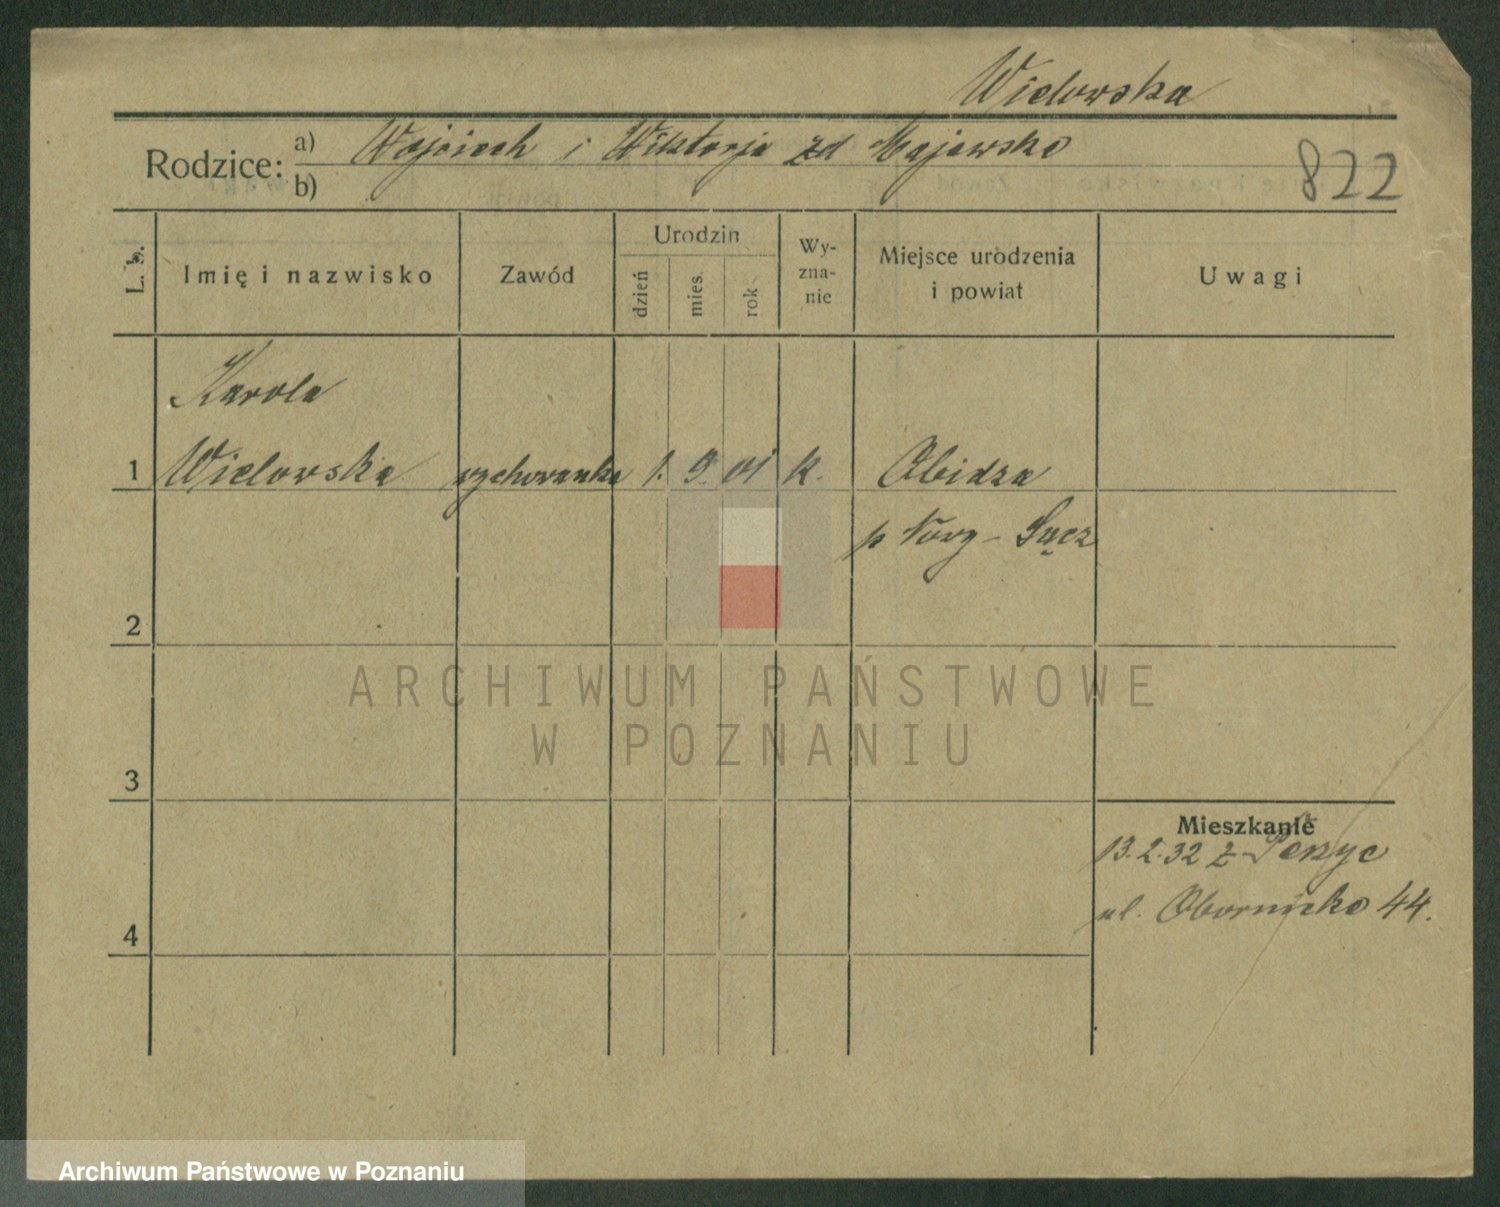 Wielowska
Rodzice: a) Wojciech i Wiktorja zd Majewsko
b)
822
L. b.
Imię i nazwisko
Zawód
Urodzin
dzień
mies.
rok
Wy-
zna-
nie
Miejsce urodzenia
i powiat
Uwagi
Karola
1 Wielowska wychowanka 1. 9. 01 k. Obidza
p Nowy-Sącz
2
3
4
Mieszkanie
13.2.32 z
ul. Obornicko 44.
ARCHIWUM PAŃSTWOWE
W POZNANIU
Archiwum Państwowe w Poznaniu